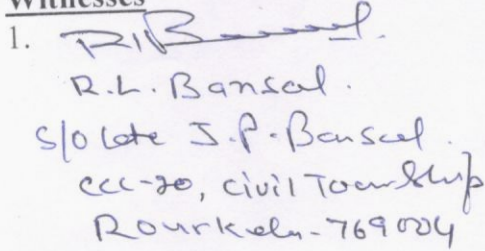 Witnesses
1.
R.L. Bansal.
S/o late J.P. Bansal.
CCC-20, Civil Township
Rourkela-769004